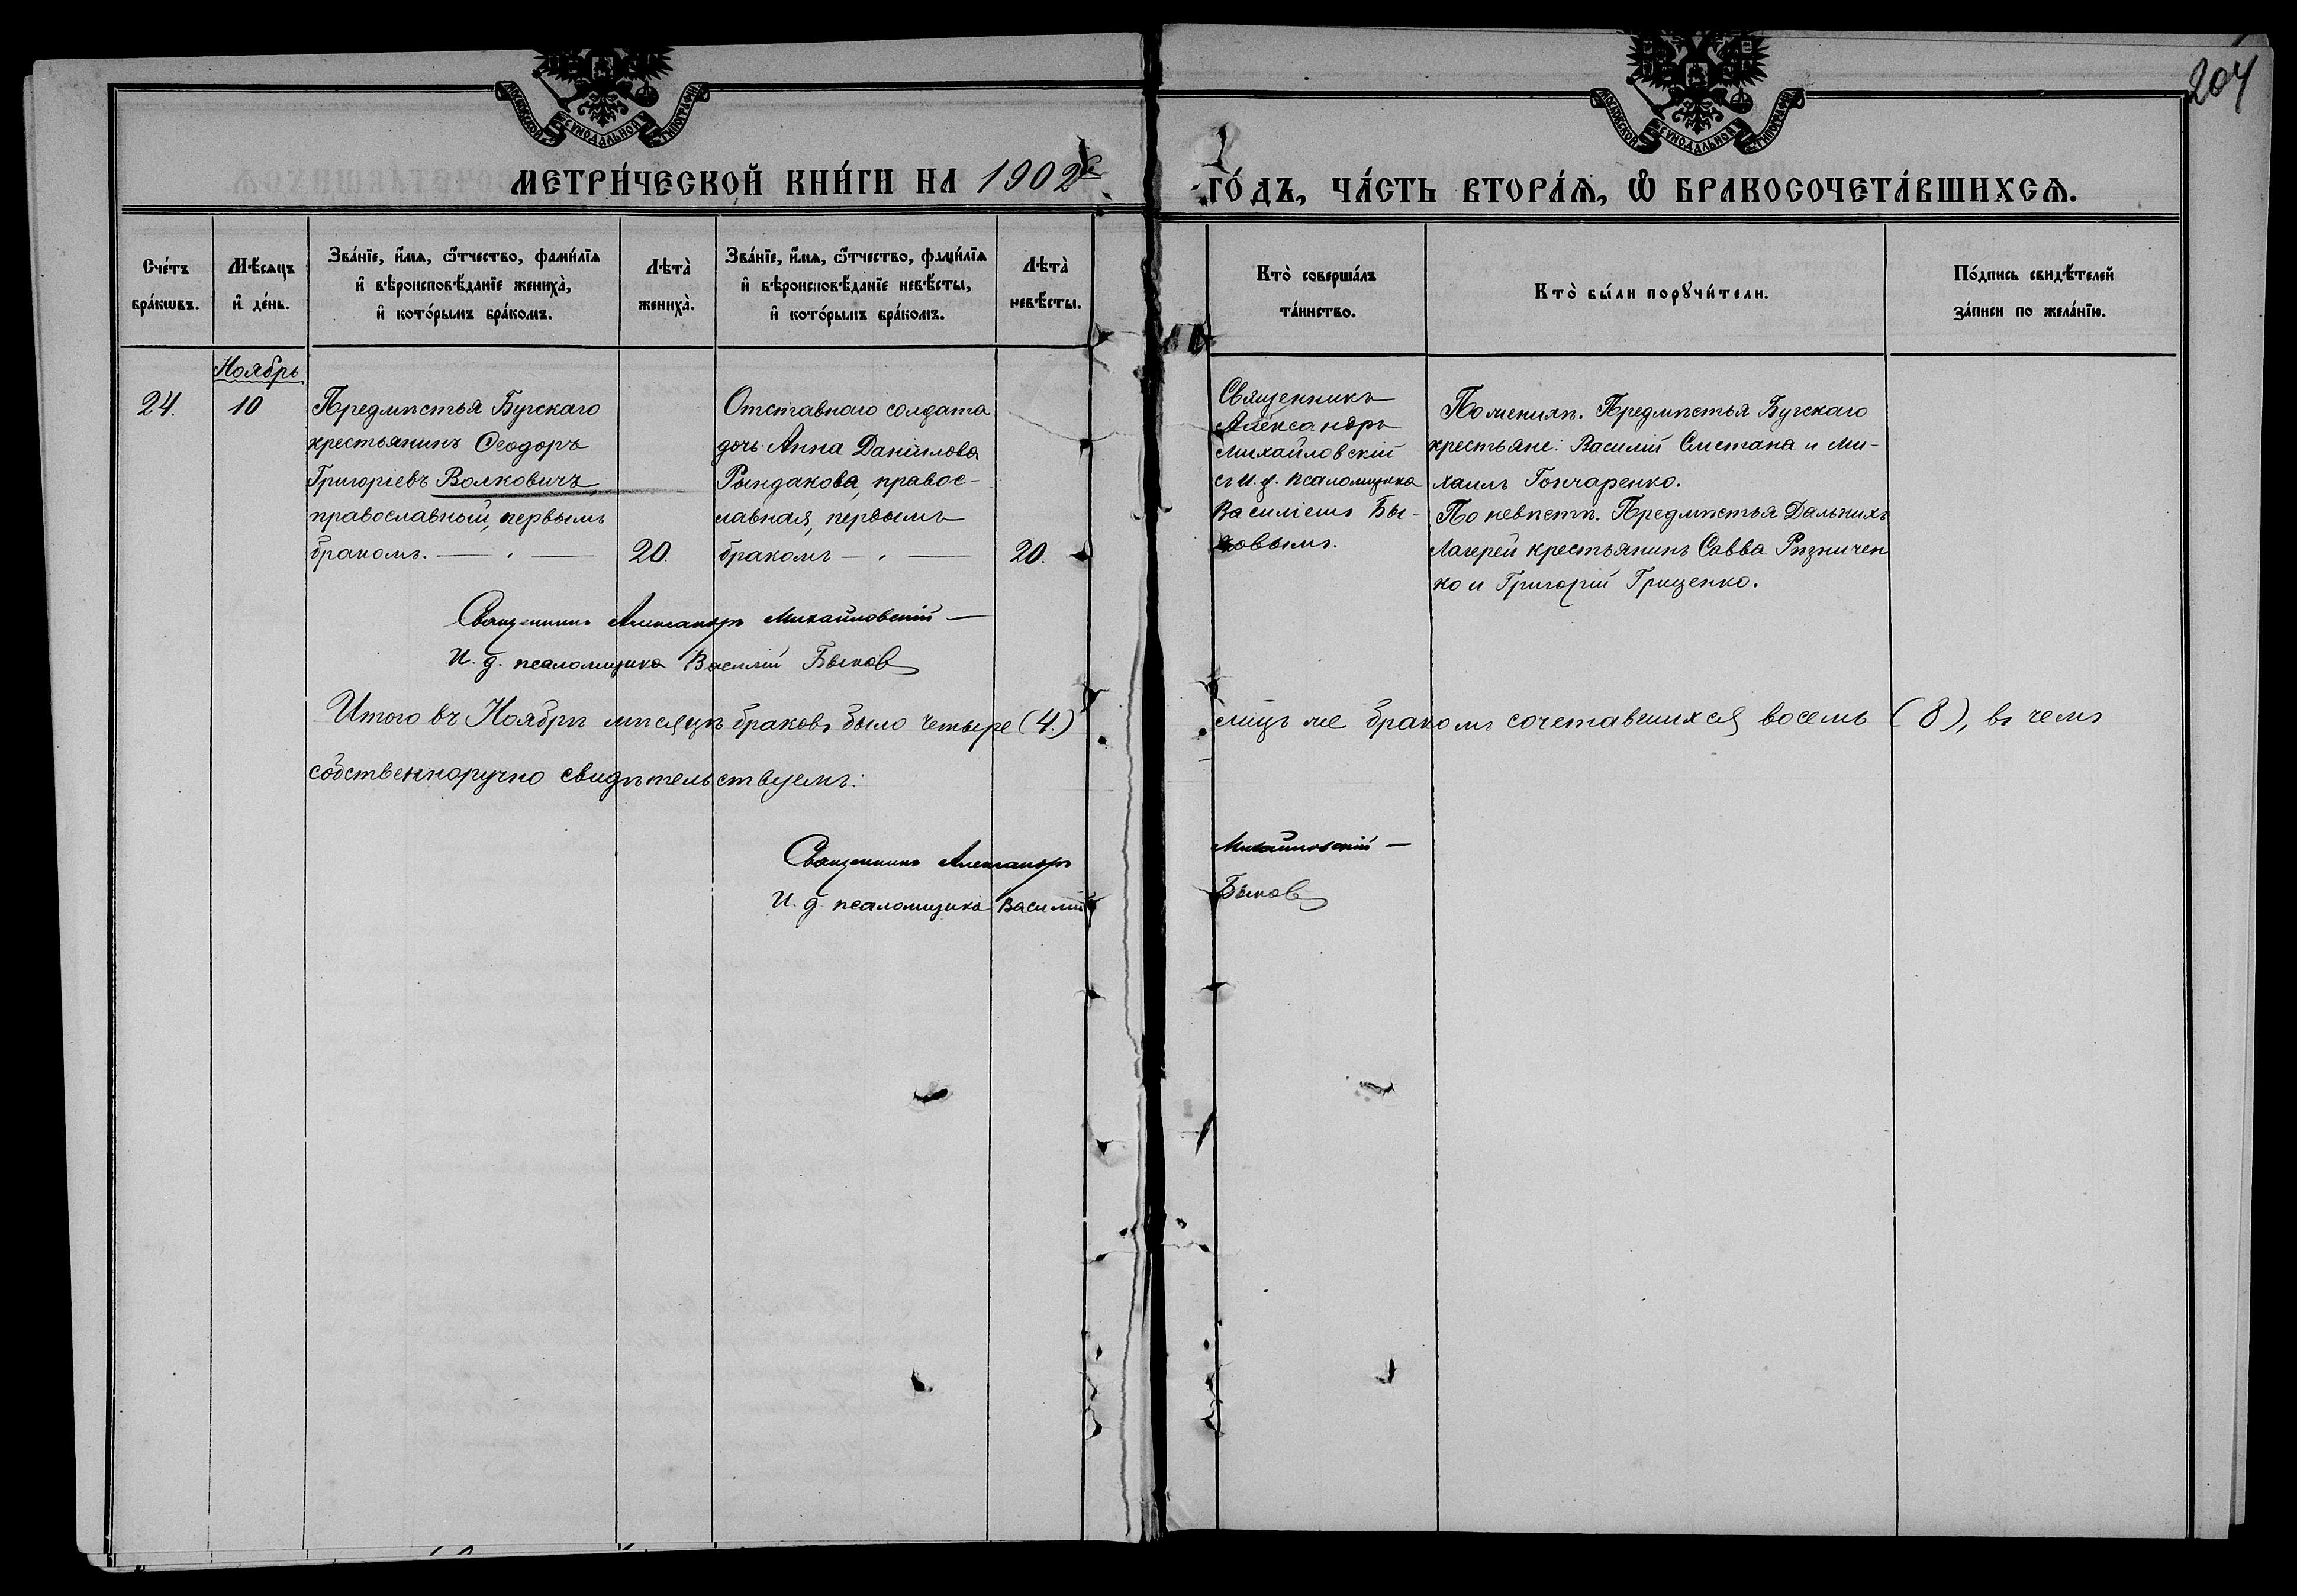 204
МОСКОВСКОЙ СѴНОДАЛЬНОЙ ТИПОГРАФІИ
МОСКОВСКОЙ СѴНОДАЛЬНОЙ ТИПОГРАФІИ
МЕТРИ́ЧЕСКОЙ КНИ́ГИ НА 1902й
ГО́ДЪ, ЧА́СТЬ ВТОРА́Ѧ, Ѽ БРАКОСОЧЕТА́ВШИХСѦ.
Сче́тъ
бра́кѡвъ.
Мѣ́сяцъ
и҆ де́нь.
Зва́нїе, и҆́мѧ, ѻ҆́тчество, фами́лїѧ
и҆ вѣроисповѣ́данїе жениха̀,
и҆ кото́рымъ бра́комъ.
Лѣта̀
жениха̀.
Зва́нїе, и҆́мѧ, ѻ҆́тчество, фами́лїѧ
и҆ вѣроисповѣ́данїе невѣ́сты,
и҆ кото́рымъ бра́комъ.
Лѣта̀
невѣ́сты.
Кто̀ соверша́лъ
та́инство.
Кто̀ бы́ли порꙋчи́тели.
По́дпись свидѣ́телей
за́писи по жела́нїю.
Ноябрь
24.
10
Предмѣстья Бугскаго
крестьянинъ Ѳеодоръ
Григоріевъ Волковичъ,
православный, первымъ
бракомъ.
20.
Отставного солдата
дочь Анна Даніилова
Рындакова, правос-
лавная, первымъ
бракомъ
20.
Священникъ
Александръ
Михайловскій
съ и. д. псаломщика
Василіемъ Бы-
ковымъ.
По женихѣ. Предмѣстья Бугскаго
крестьяне: Василій Сметана и Ми-
хаилъ Гончаренко.
По невѣстѣ. Предмѣстья Дальнихъ
Лагерей крестьянинъ Савва Рѣзничен
ко и Григорій Гриценко.
Священникъ Александръ Михайловскій
И. д. псаломщика Василій Быковъ
Итого въ Ноябрѣ мѣсяцѣ браковъ было четыре (4.) лицъ же бракомъ сочетавшихся восемь (8), въ чемъ
собственноручно свидѣтельствуемъ:
Священникъ Александръ Михайловскій
И. д. псаломщика Василій Быковъ